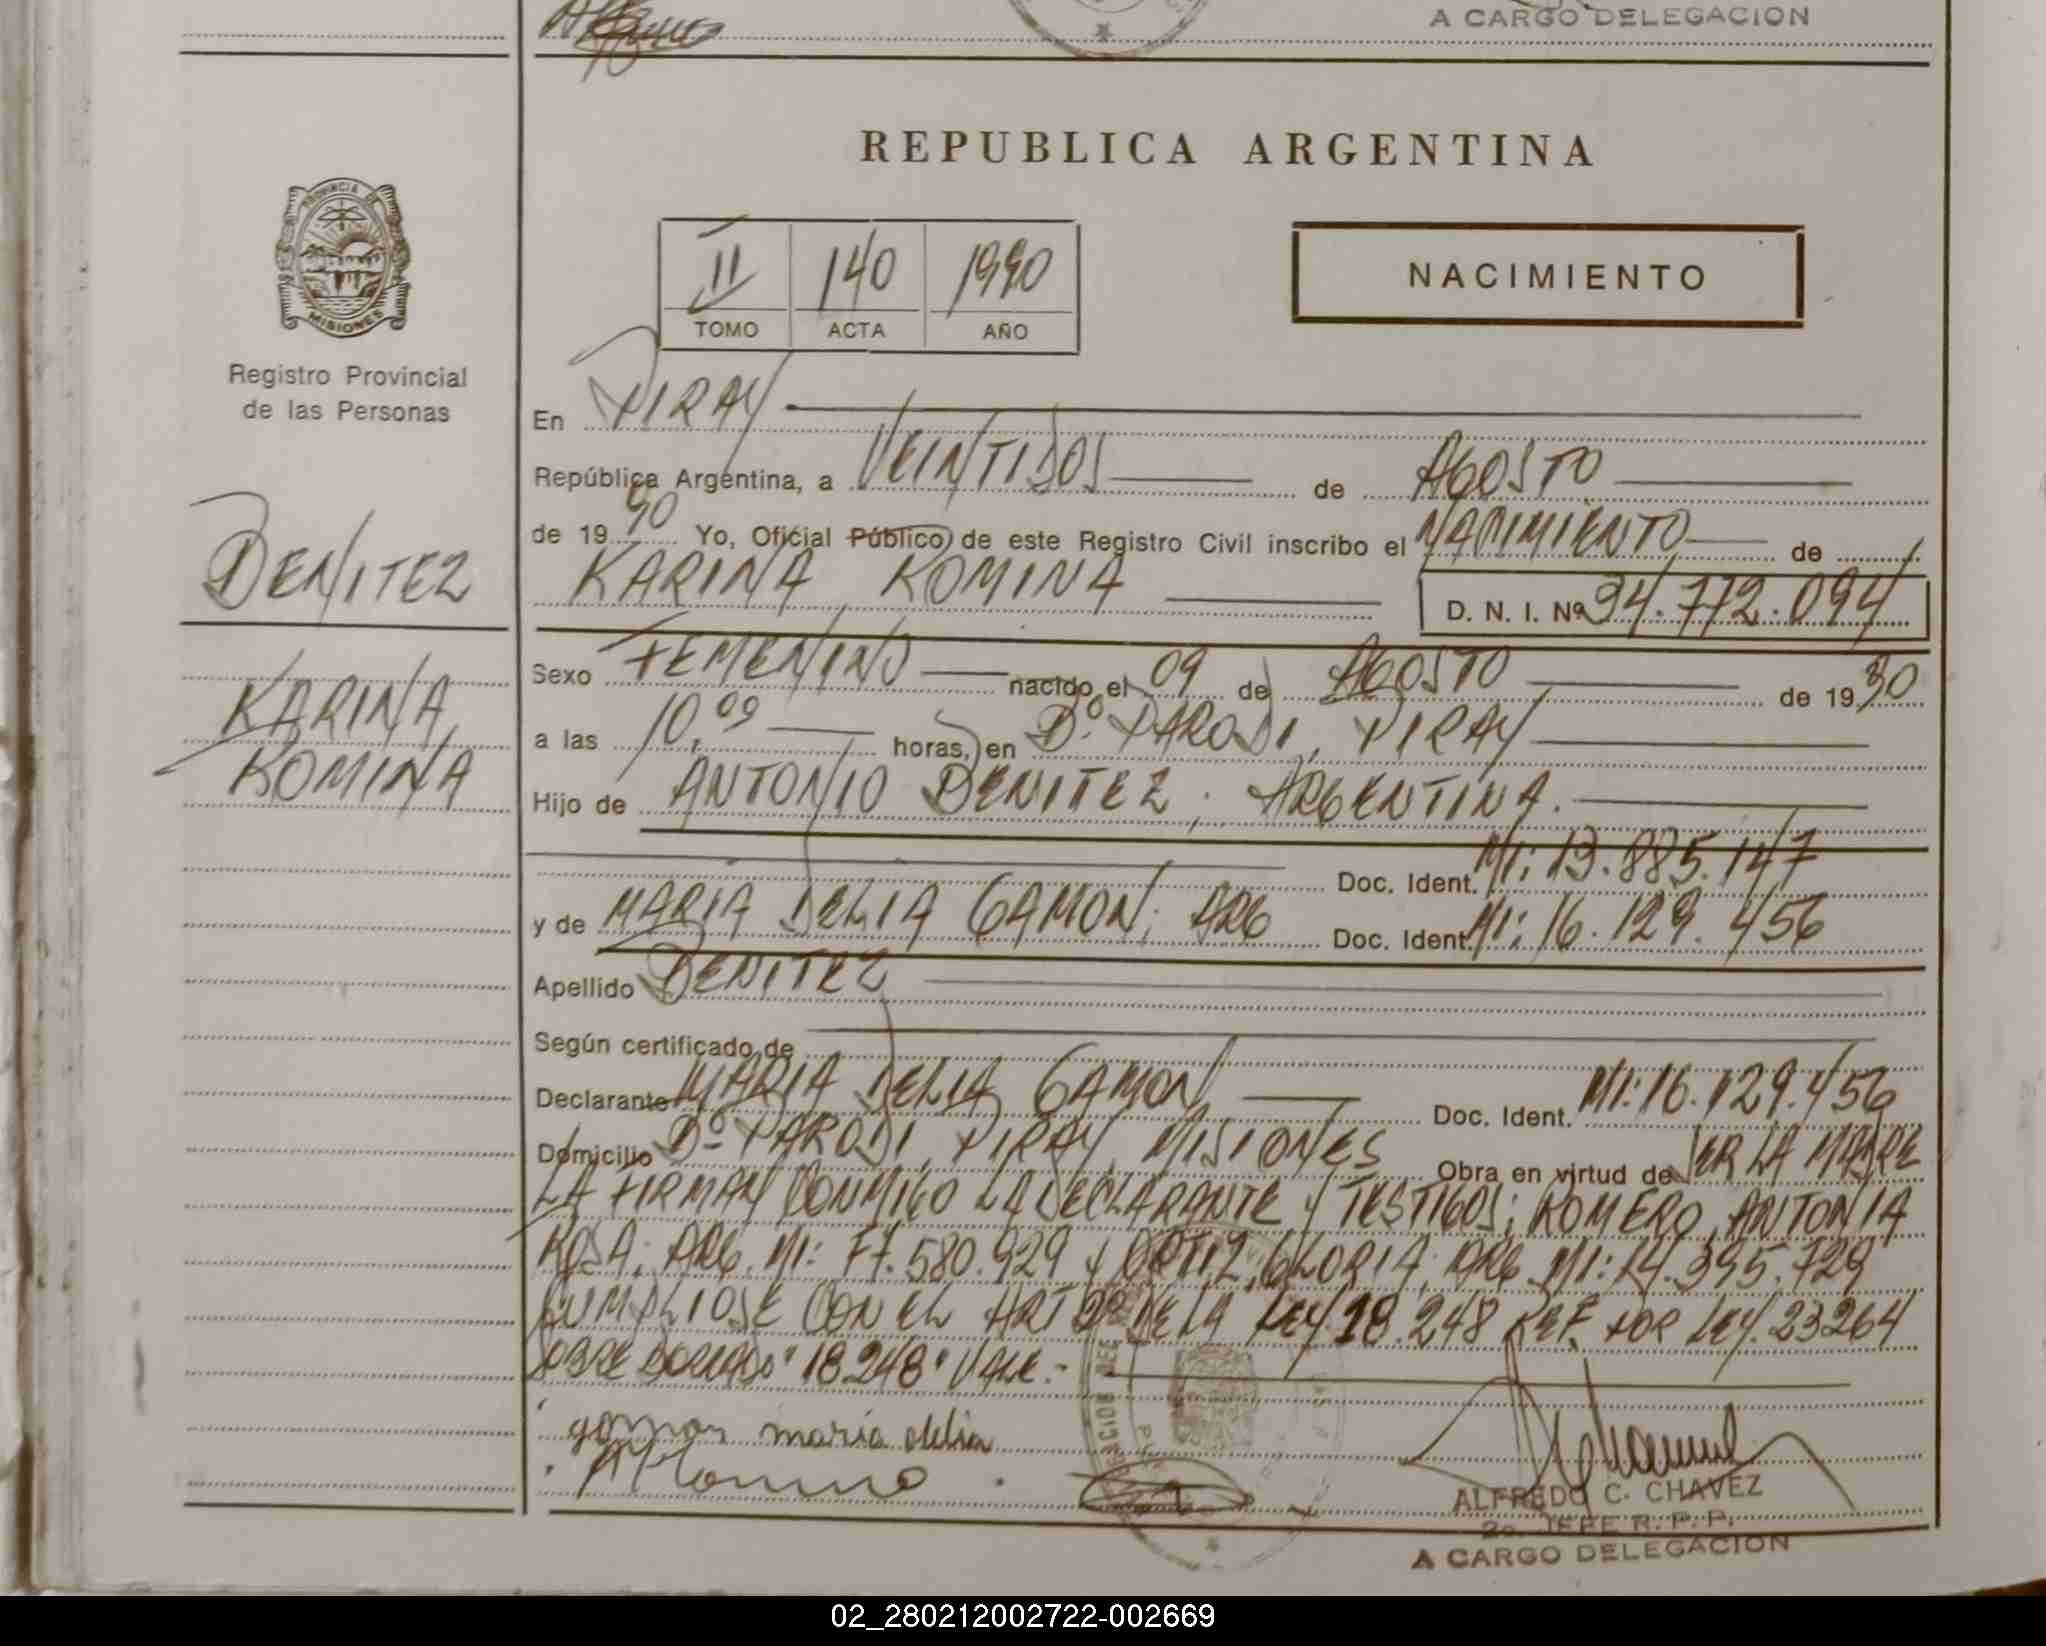 A CARGO DELEGACION
REPUBLICA ARGENTINA
PROVINCIA DE
MISIONES
Registro Provincial
de las Personas
II 140 1990
TOMO ACTA AÑO
NACIMIENTO
En PIRAY
República Argentina, a VEINTIDOS de AGOSTO
de 1990 Yo, Oficial Público de este Registro Civil inscribo el NACIMIENTO de
BENITEZ
KARINA ROMINA D. N. I. Nº 34.772.094
KARINA
ROMINA
Sexo FEMENINO nacido el 09 de AGOSTO de 1990
a las 10,00 horas, en Dº PARODI, PIRAY
Hijo de ANTONIO BENITEZ, ARGENTINA.
Doc. Ident. MI: 13.885.147
y de MARIA DELIA GAMON, ARG Doc. Ident. MI: 16.129.456
Apellido BENITEZ
Según certificado de
Declarante MARIA DELIA GAMON Doc. Ident. MI: 16.129.456
Domicilio Dº PARODI, PIRAY, MISIONES Obra en virtud de SER LA MADRE
LA FIRMAN CONMIGO LA DECLARANTE Y TESTIGOS: ROMERO, ANTONIA
ROSA; ARG. MI: F7.580.929 y ORTIZ, GLORIA; ARG. MI: 14.395.729
CUMPLIOSE CON EL ART 2º DE LA LEY 18.248 REF. POR LEY. 23264
SOBRE BORRADO "18.248" VALE.-
gamon maria delia
ALFREDO C. CHAVEZ
2o. JEFE R. P. P.
A CARGO DELEGACION
02_280212002722-002669